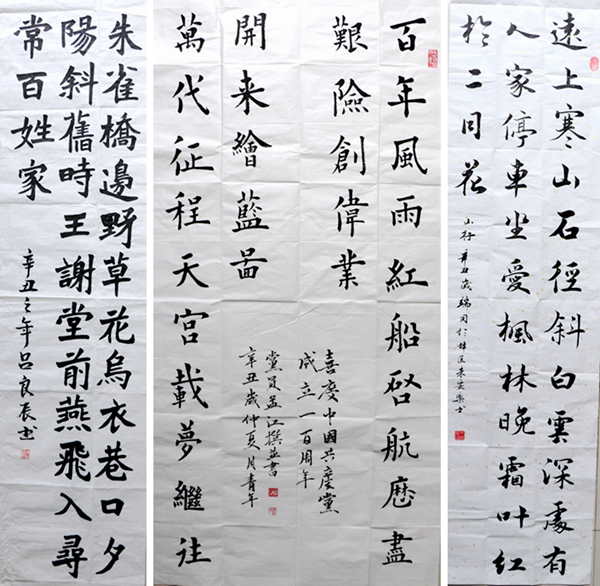 遠上寒山石徑斜白雲深處有
人家停車坐愛楓林晚霜叶红
於二月花
山行 辛丑歲
百年風雨紅船啓航歷盡
艱險創偉業
萬代征程天宮載夢繼往
開来繪藍啚
喜慶中國共產黨
成立一百周年
黨員孟江撰並書
辛丑歲仲夏月青年
朱雀橋邊野草花烏衣巷口夕
陽斜舊時王謝堂前燕飛入尋
常百姓家
辛丑之年吕良辰书